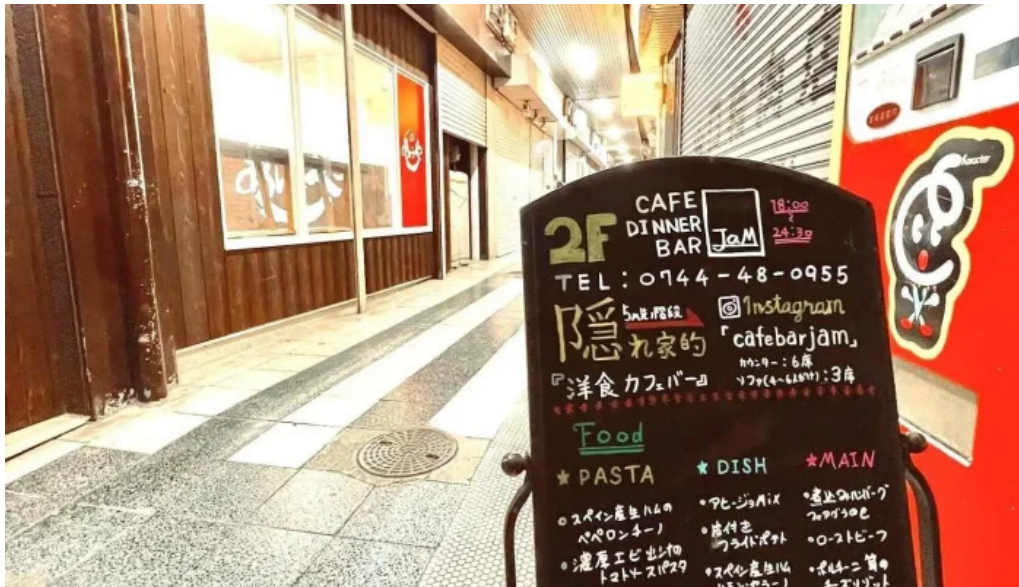 CAFE
DINNER
BAR
JaM
2F
18:00
〜
24:30
TEL：0744-48-0955
5m先階段
隠れ家的
『洋食カフェバー』
Instagram
「cafebarjam」
カウンター：6席
ソファ(4〜6人がけ)：3席
Food
★PASTA
・スペイン産生ハムの
ペペロンチーノ
・濃厚エビ出汁の
トマトソースパスタ
★DISH
・アヒージョMix
・皮付き
フライドポテト
・スペイン産生ハム
★MAIN
・煮込みハンバーグ
フォアグラのせ
・ローストビーフ
・ポルチーニ茸の
チーズリゾット
character